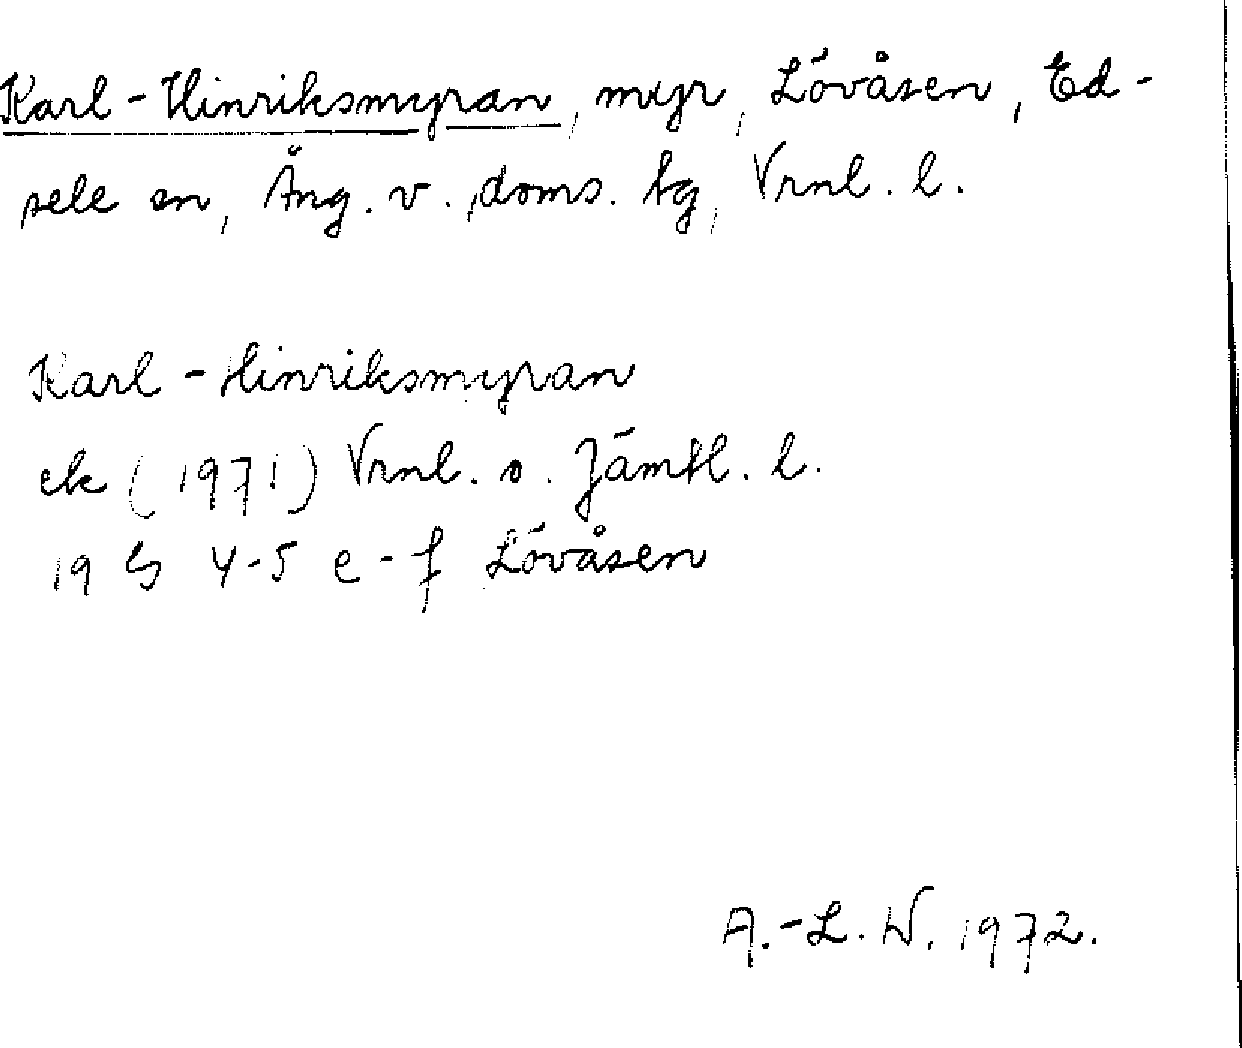 Karl-Hinriksmyran, myr, Lövåsen, Ed-
sele sn, Ång. v., doms. tg, Vrnl. l.
Karl-Hinriksmyran
ek (1971) Vrnl. o. Jämtl. l.
19 G 4-5 e-f Lövåsen
A.-L. W. 1972.